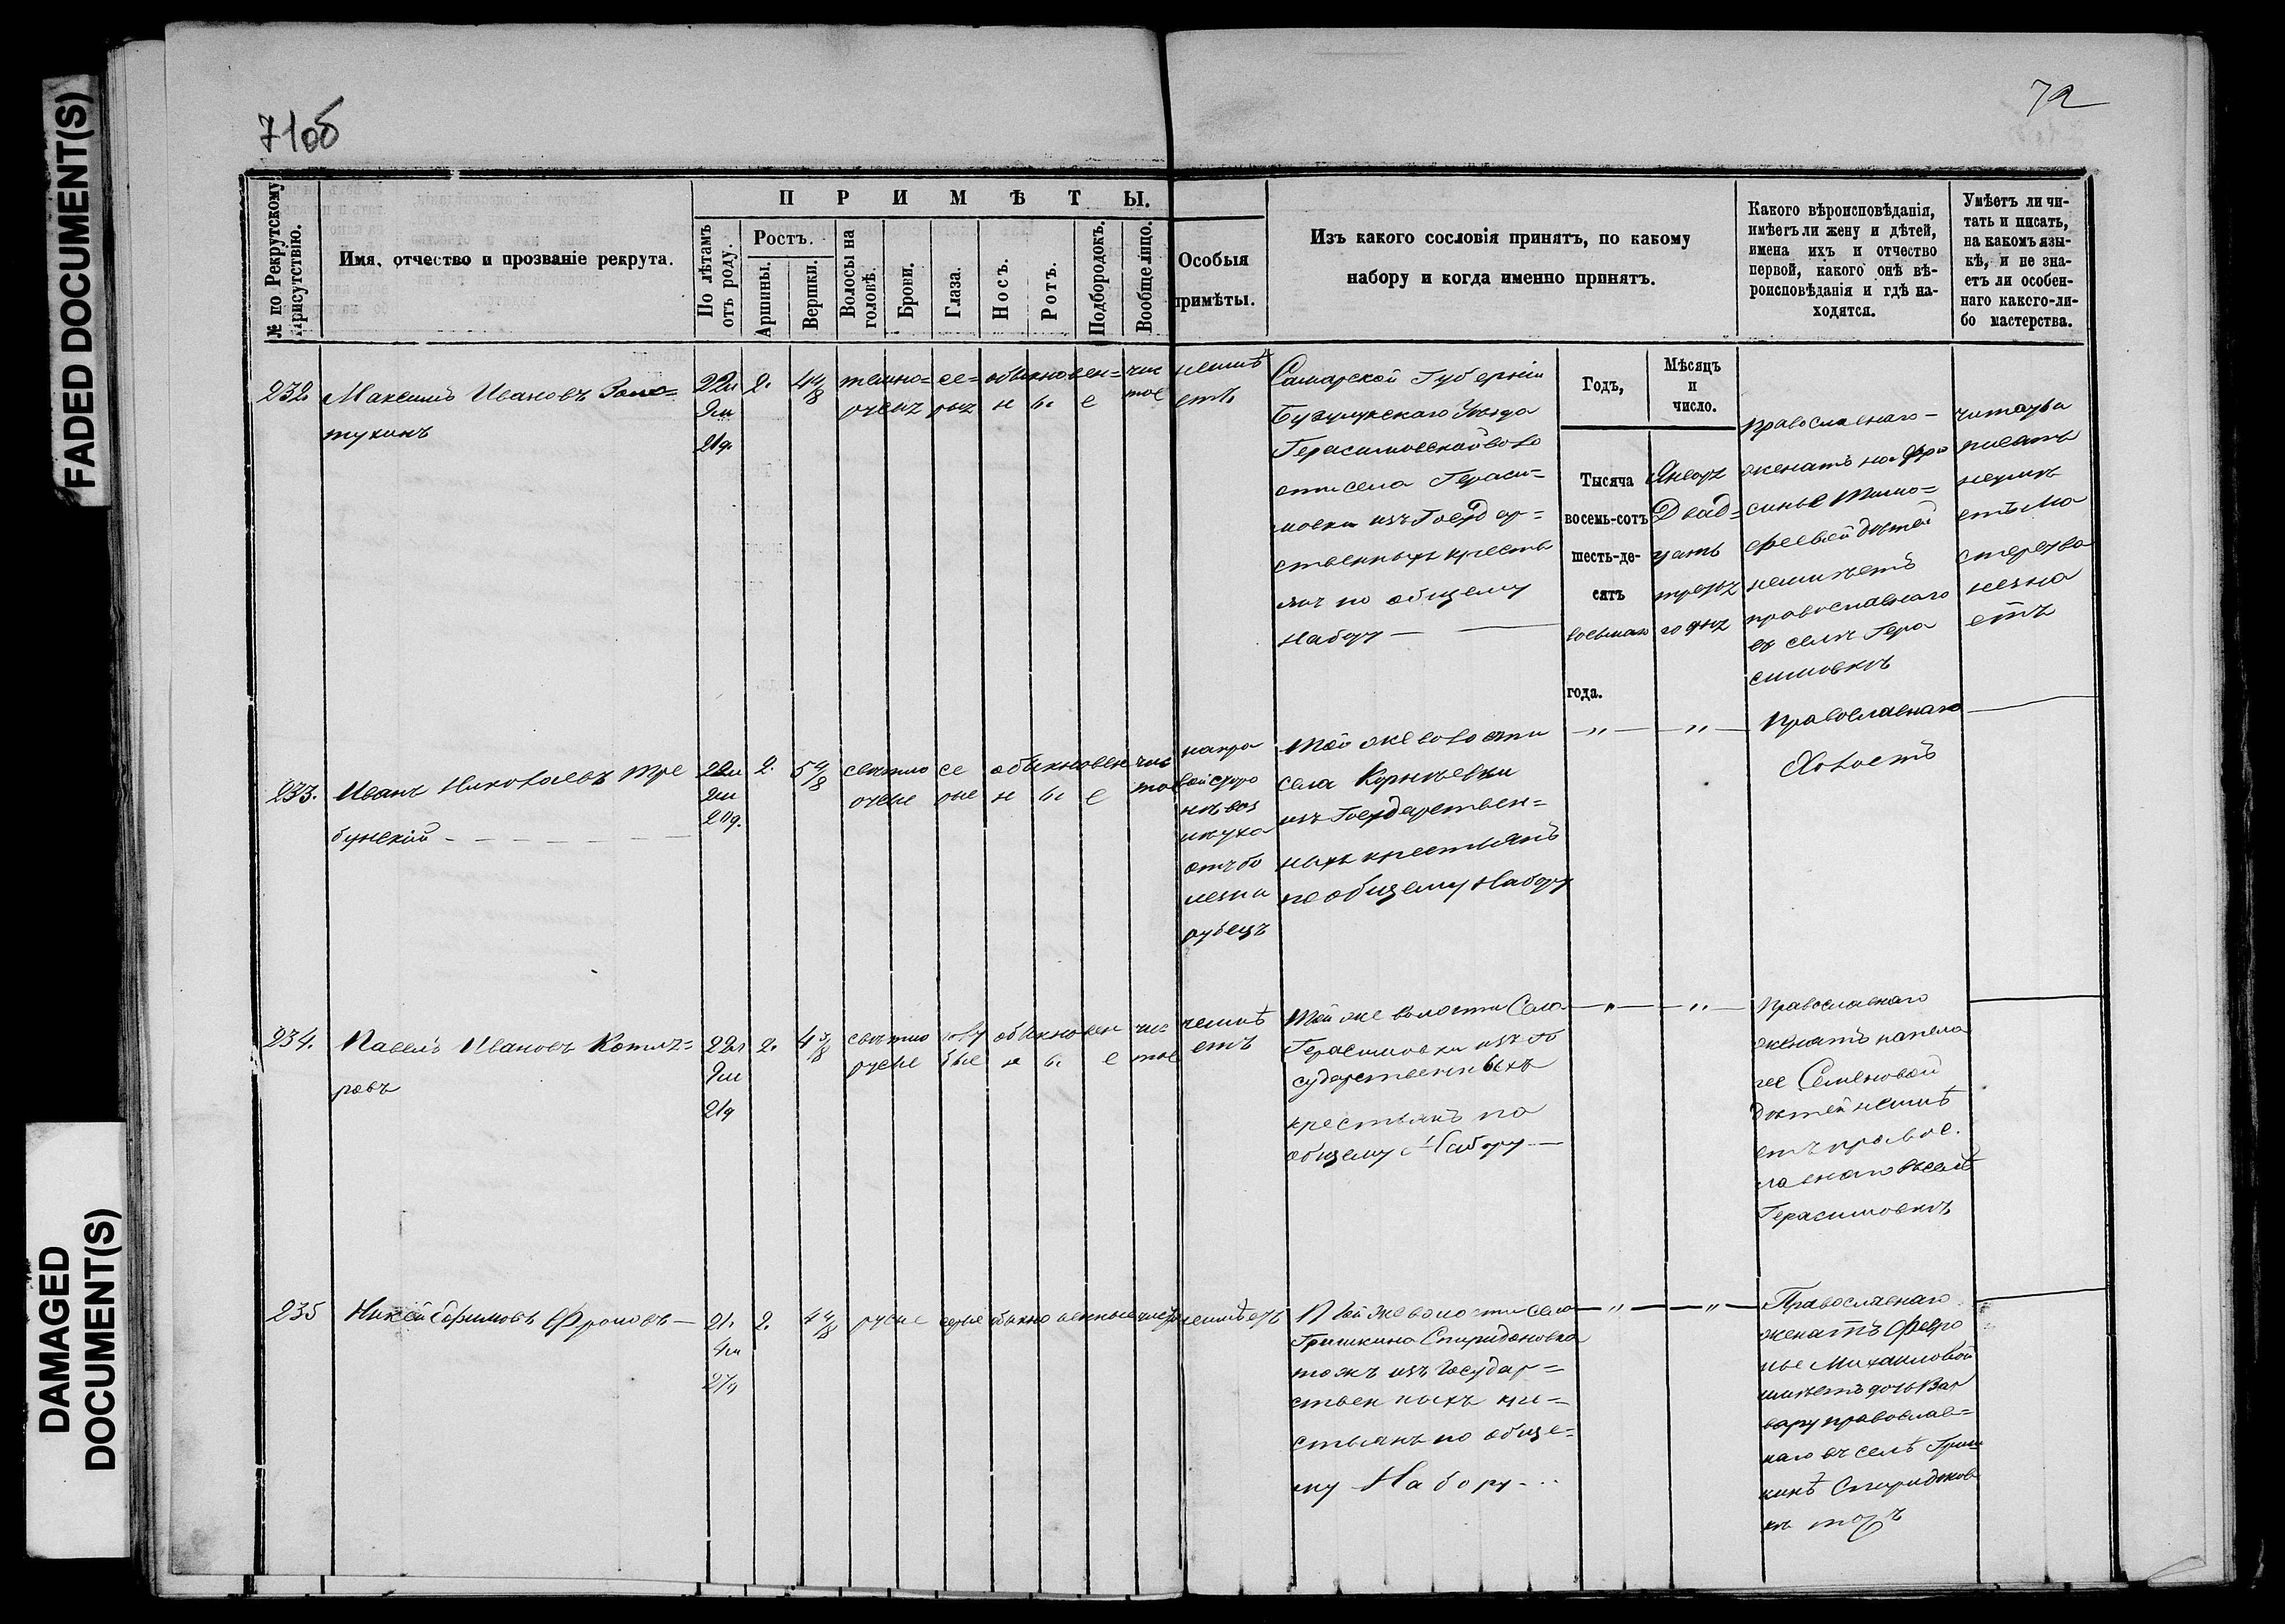 FADED DOCUMENT(S)
DAMAGED
DOCUMENT(S)
71об
72
№ по Рекрутскому
присутствію.
Имя, отчество и прозваніе рекрута.
ПРИМѢТЫ.
По лѣтамъ
отъ роду.
Ростъ.
Аршины.
Вершки.
Волосы на
головѣ.
Брови.
Глаза.
Носъ.
Ротъ.
Подбородокъ.
Вообще лицо.
Особыя
примѣты.
Изъ какого сословія принятъ, по какому
набору и когда именно принятъ.
Какого вѣроисповѣданія,
имѣетъ ли жену и дѣтей,
имена ихъ и отчество
первой, какого онѣ вѣ-
роисповѣданія и гдѣ на-
ходятся.
Умѣетъ ли чи-
тать и писать,
на какомъ язы-
кѣ, и не зна-
етъ ли особен-
наго какого-ли-
бо мастерства.
232
Максимъ Ивановъ
тухинъ
22л
9м
21д.
2.
4 4/8
темно=
русыя
се=
рыя
обыкновен=
н ы е
чис
тое
неимѣ
етъ
Самарской Губерніи
Бузулукскаго Уѣзда
Герасимовской воло
сти села Гераси=
мовки изъ Государ=
ственныхъ кресть
янъ по общему
набору —
Годъ,
Тысяча
восемь-сотъ
шесть-де-
сятъ
восьмаго
года.
Мѣсяцъ
и
число.
Январ
Двад=
цать
третья
го дня
Православнаго —
женатъ на Фро
синье Тимо=
феевой детей
неимѣетъ
православнаго
въ селѣ Гера
симовкѣ
читать и
писать
неумѣ
етъ Ма
стерства
незна
етъ
233.
Иванъ Николаевъ Тре
бунскій
22л
2м
20д.
2.
5 4/8
свѣтло
русые
се
рые
обыкновен
н ы е
чис
тое
направой сторо
отъ бо
лезни
рубецъ
Той же волости
села Корнѣевки
изъ Государствен=
ныхъ крестьянъ
по общему набору
— „ — „ —
Православнаго
Холостъ
234.
Павелъ Ивановъ Котля=
ровъ
22л
9м
21д
2.
4 3/8
свѣтло
русые
голу
бые
обыкновен
н ы е
чис=
тое
неимѣ
етъ
Той же волости Села
Герасимовки изъ Го
сударственныхъ
крестьянъ по
общему Набору —
— „ — „ —
Православнаго
женатъ на Пела
гее Семеновой
детей неимѣ
етъ правос.
лавнаго въ селѣ
Герасимовкѣ
235
Ефимовъ Фроловъ —
21.
4м
27д
2.
4 4/8
русые
серые
обыкновенные
чистое
неимѣетъ
Той же волости села
Гришкина Спиридоновка
тожъ изъ Государ=
ственныхъ кре=
стьянъ по обще=
му Набору - ..
— „ — „ —
Православнаго
женатъ Февро
нье Михаиловой
имѣетъ дочь Вар
вару православ=
наго въ селѣ Гриш
кинѣ Спиридонов
кѣ тожъ